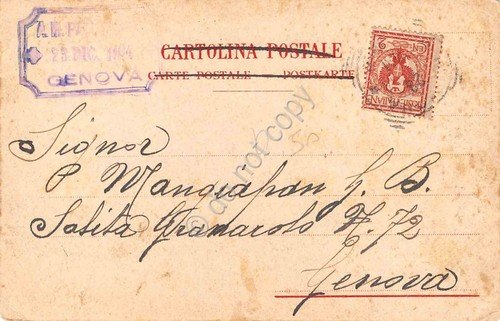 A.M.PA
23 DIC. 1904
GENOVA
CARTOLINA POSTALE
CARTE POSTALE POSTKARTE
Signor
P. Mangiapan G. B.
Salita Granarolo N. 72
Genova
do not copy